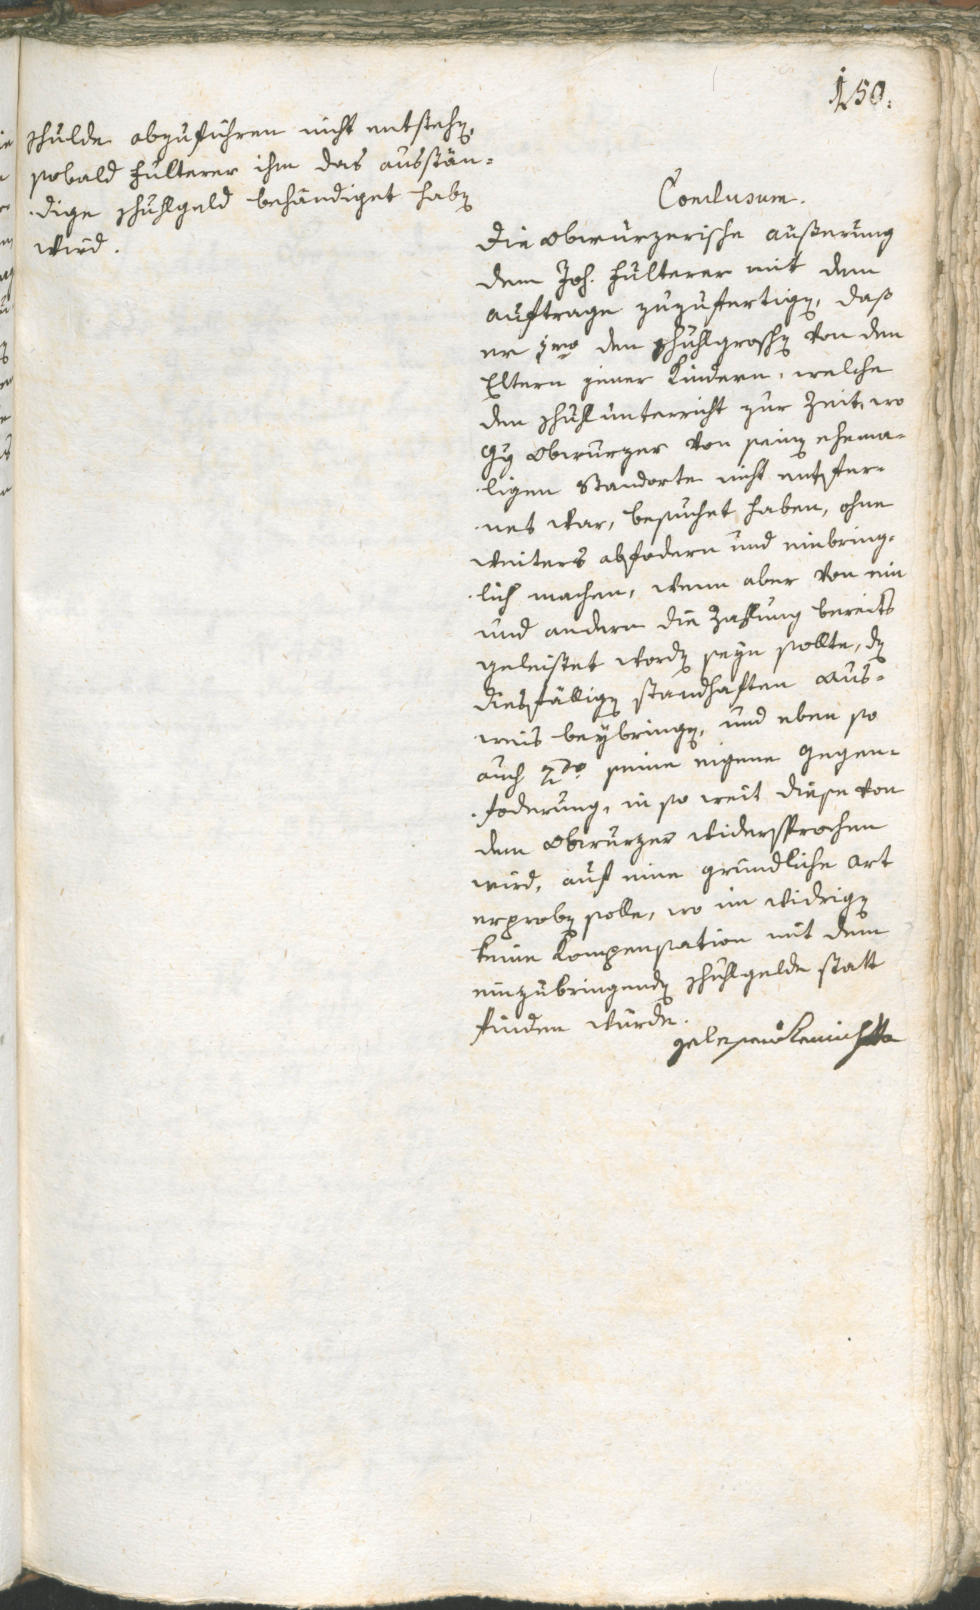 150.
schulde abzuführen nicht entstehen,
sobald Hulterer ihm das ausstän-
dige Schulgeld behändiget haben
wird.
Conclusum.
Die Obwurzerische Außerung
dem Joh. Hulterer mit dem
Auftrage zuzufertigen, daß
er 1mo den Schulgroschen von den
Eltern jener Kindern, welche
den Schulunterricht zur Zeit, wo
Obwurzer von seinen ehema-
ligen Standorte nicht entfer-
net war, besuchet haben, ohne
weiters abfodern und einbring-
lich machen, wenn aber von ein
und andern die Zahlung bereits
geleistet worden seyn sollte, den
diesfälligen standhaften Aus-
weis beybringen, und eben so
auch 2do seine eigene Gegen-
foderung, in so weit diese von
dem Obwurzer widersprochen
wird, auf eine gründliche Art
erproben solle, wo im widrigen
keine Kompensation mit dem
einzubringenden Schulgelde statt
finden würde.